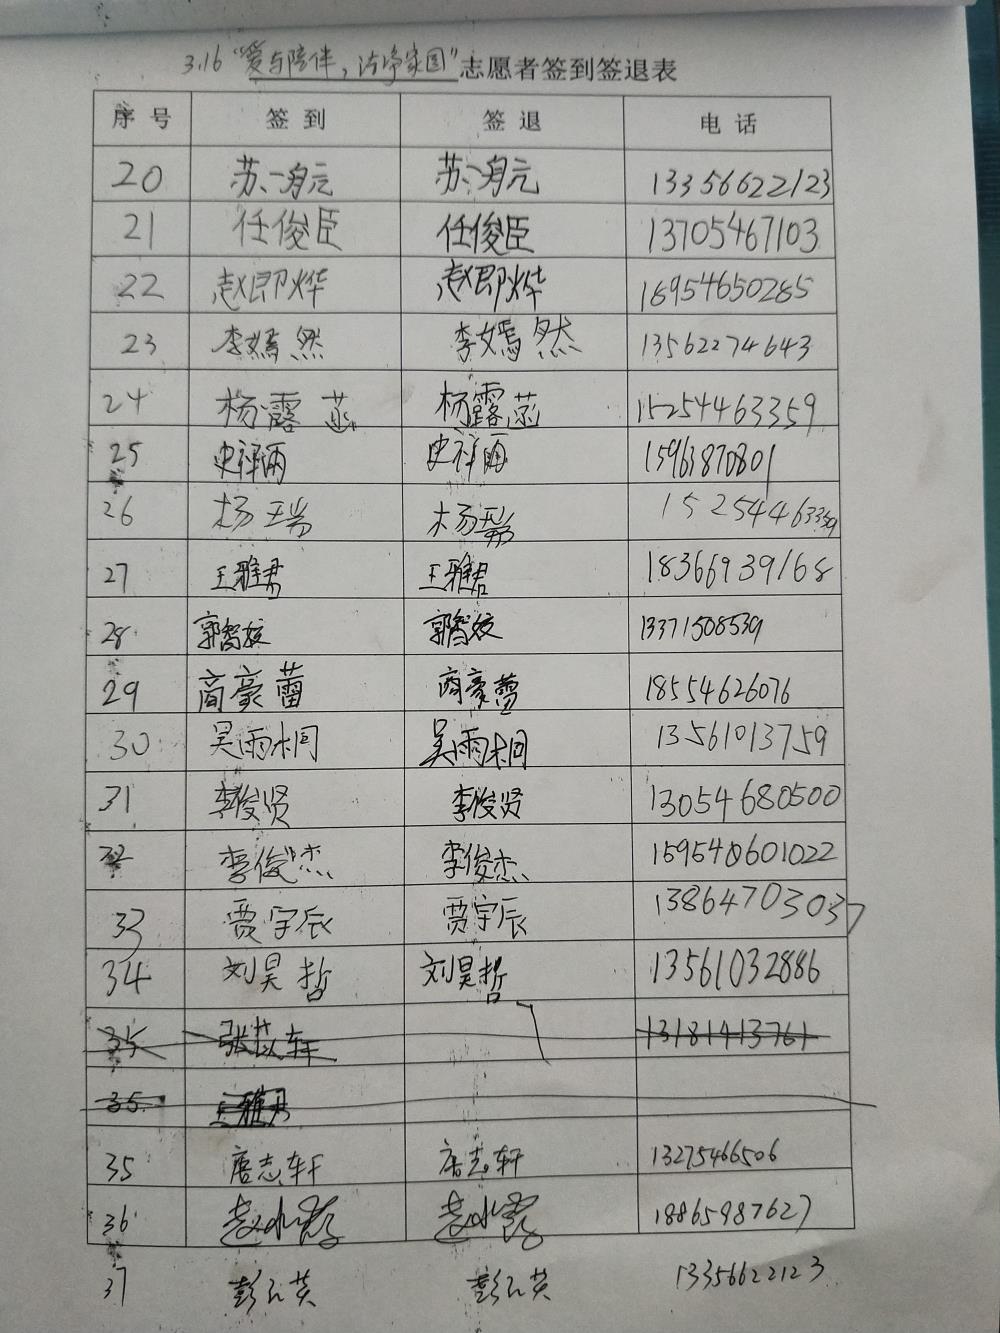 3.16“爱与陪伴，洁净家园”志愿者签到签退表
序号 签到 签退 电话
20 苏一舟元 苏一舟元 13356622123
21 任俊臣 任俊臣 13705467103
22 赵即烨 赵即烨 18954650285
23 李嫣然 李嫣然 13562274643
24 杨露菡 杨露菡 15254463359
25 史祥雨 史祥雨 15963870801
26 杨瑞 杨瑞 15254463359
27 王雅君 王雅君 18366939168
28 郭智姣 郭智姣 13371508539
29 商豪蕾 商豪蕾 18554626076
30 吴雨桐 吴雨桐 13561013759
31 李俊贤 李俊贤 13054680500
32 李俊杰 李俊杰 159540601022
33 贾宇辰 贾宇辰 13864703037
34 刘昊哲 刘昊哲 13561032886
35 张苡轩 13181413761
35 王雅君
35 唐志轩 唐志轩 13275466506
36 赵冰霞 赵冰霞 18865987627
37 彭元英 彭元英 13356622123